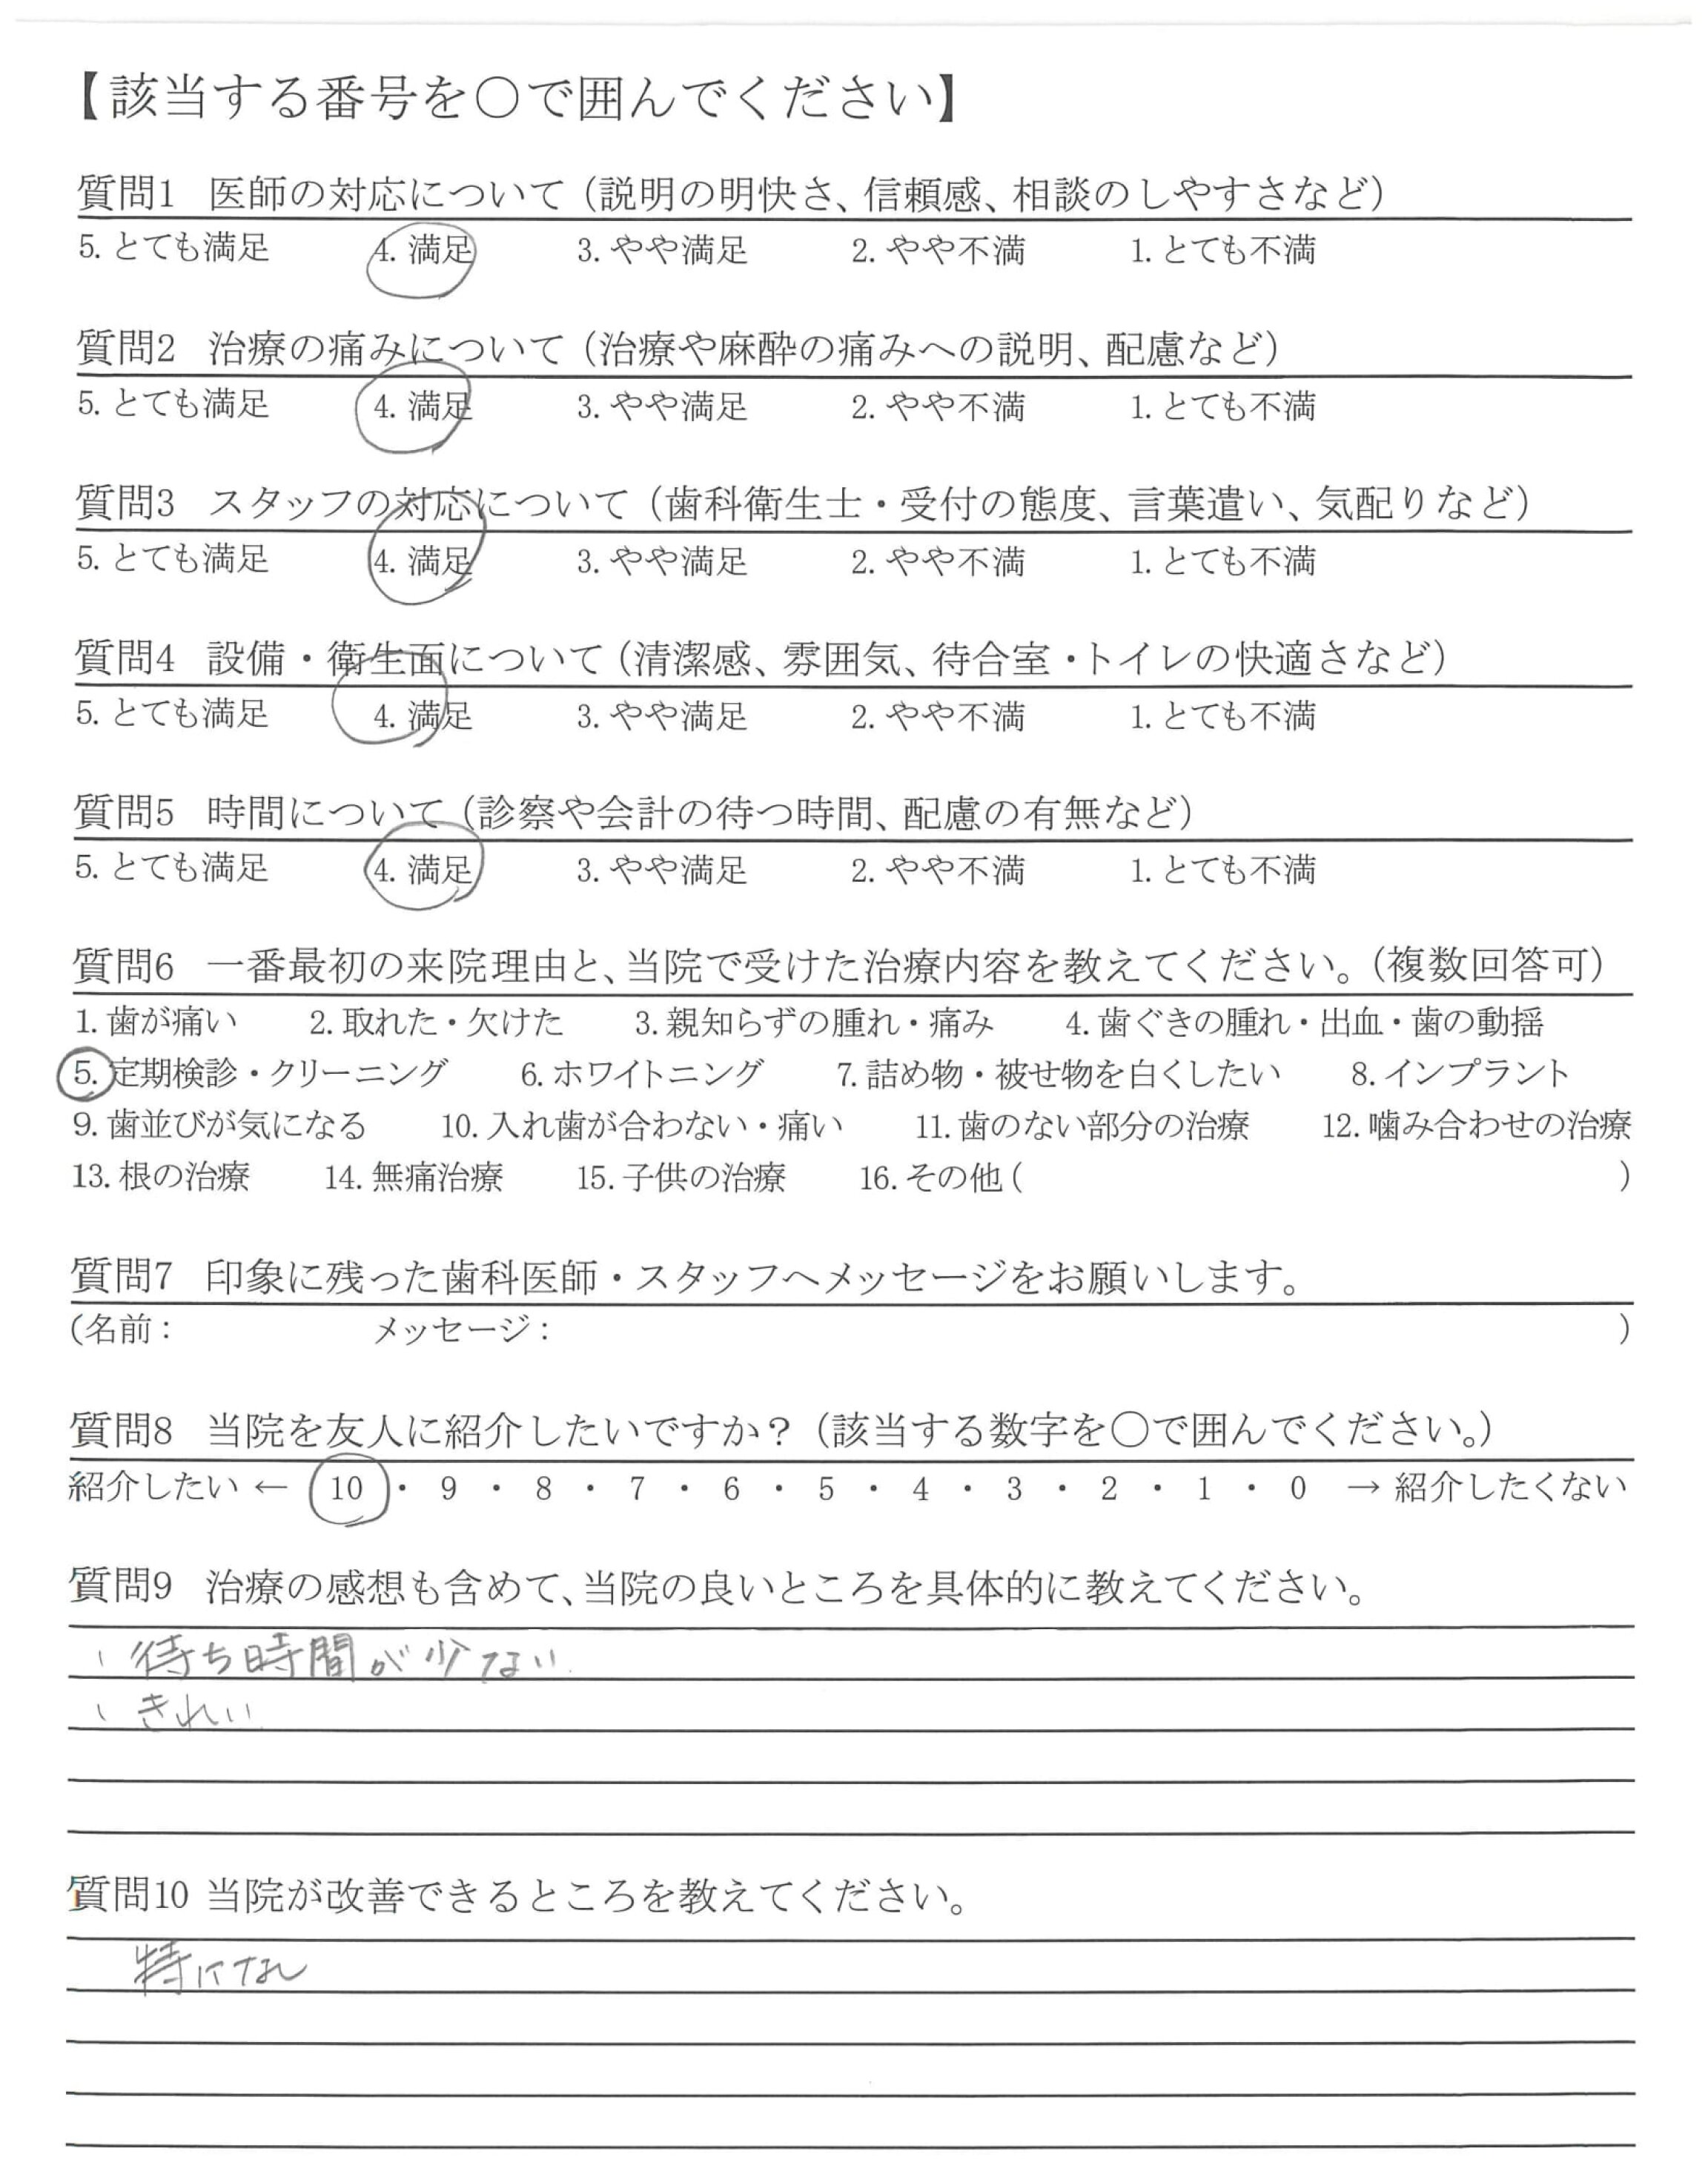 【該当する番号を〇で囲んでください】
質問1 医師の対応について（説明の明快さ、信頼感、相談のしやすさなど）
5. とても満足 4. 満足 3. やや満足 2. やや不満 1. とても不満
質問2 治療の痛みについて（治療や麻酔の痛みへの説明、配慮など）
5. とても満足 4. 満足 3. やや満足 2. やや不満 1. とても不満
質問3 スタッフの対応について（歯科衛生士・受付の態度、言葉遣い、気配りなど）
5. とても満足 4. 満足 3. やや満足 2. やや不満 1. とても不満
質問4 設備・衛生面について（清潔感、雰囲気、待合室・トイレの快適さなど）
5. とても満足 4. 満足 3. やや満足 2. やや不満 1. とても不満
質問5 時間について（診察や会計の待つ時間、配慮の有無など）
5. とても満足 4. 満足 3. やや満足 2. やや不満 1. とても不満
質問6 一番最初の来院理由と、当院で受けた治療内容を教えてください。（複数回答可）
1. 歯が痛い 2. 取れた・欠けた 3. 親知らずの腫れ・痛み 4. 歯ぐきの腫れ・出血・歯の動揺
5. 定期検診・クリーニング 6. ホワイトニング 7. 詰め物・被せ物を白くしたい 8. インプラント
9. 歯並びが気になる 10. 入れ歯が合わない・痛い 11. 歯のない部分の治療 12. 噛み合わせの治療
13. 根の治療 14. 無痛治療 15. 子供の治療 16. その他（ ）
質問7 印象に残った歯科医師・スタッフへメッセージをお願いします。
（名前： メッセージ： ）
質問8 当院を友人に紹介したいですか？（該当する数字を〇で囲んでください。）
紹介したい ← 10 ・ 9 ・ 8 ・ 7 ・ 6 ・ 5 ・ 4 ・ 3 ・ 2 ・ 1 ・ 0 → 紹介したくない
質問9 治療の感想も含めて、当院の良いところを具体的に教えてください。
、待ち時間が少ない
、きれい
質問10 当院が改善できるところを教えてください。
特になし